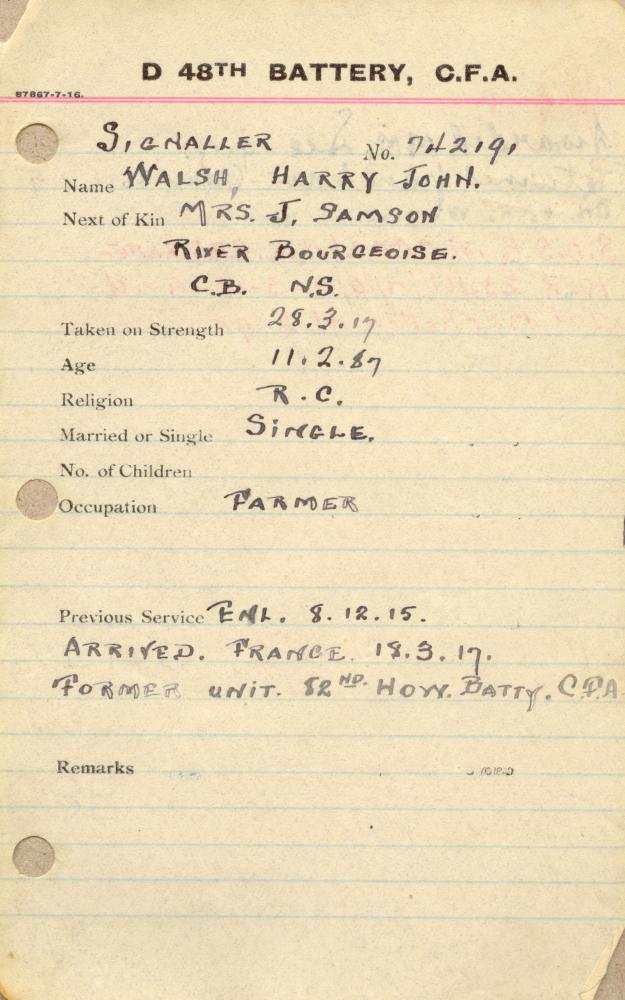 D 48TH BATTERY, C.F.A.
87867-7-16.
SIGNALLER No. 742191
Name WALSH, HARRY JOHN.
Next of Kin MRS. J. SAMSON
RIVER BOURGEOISE.
C.B. N.S.
Taken on Strength 28.3.17
Age 11.2.87
Religion R.C.
Married or Single SINGLE.
No. of Children
Occupation FARMER
Previous Service ENL. 8.12.15.
ARRIVED. FRANCE. 18.3.17.
FORMER UNIT. 82ND. HOW. BATTY. CFA
Remarks